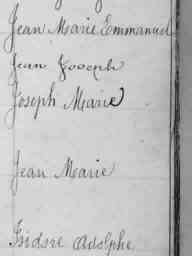 Jean Marie Emmanuel
Jean Joseph
Joseph Marie
Jean Marie
Isidore Adolphe